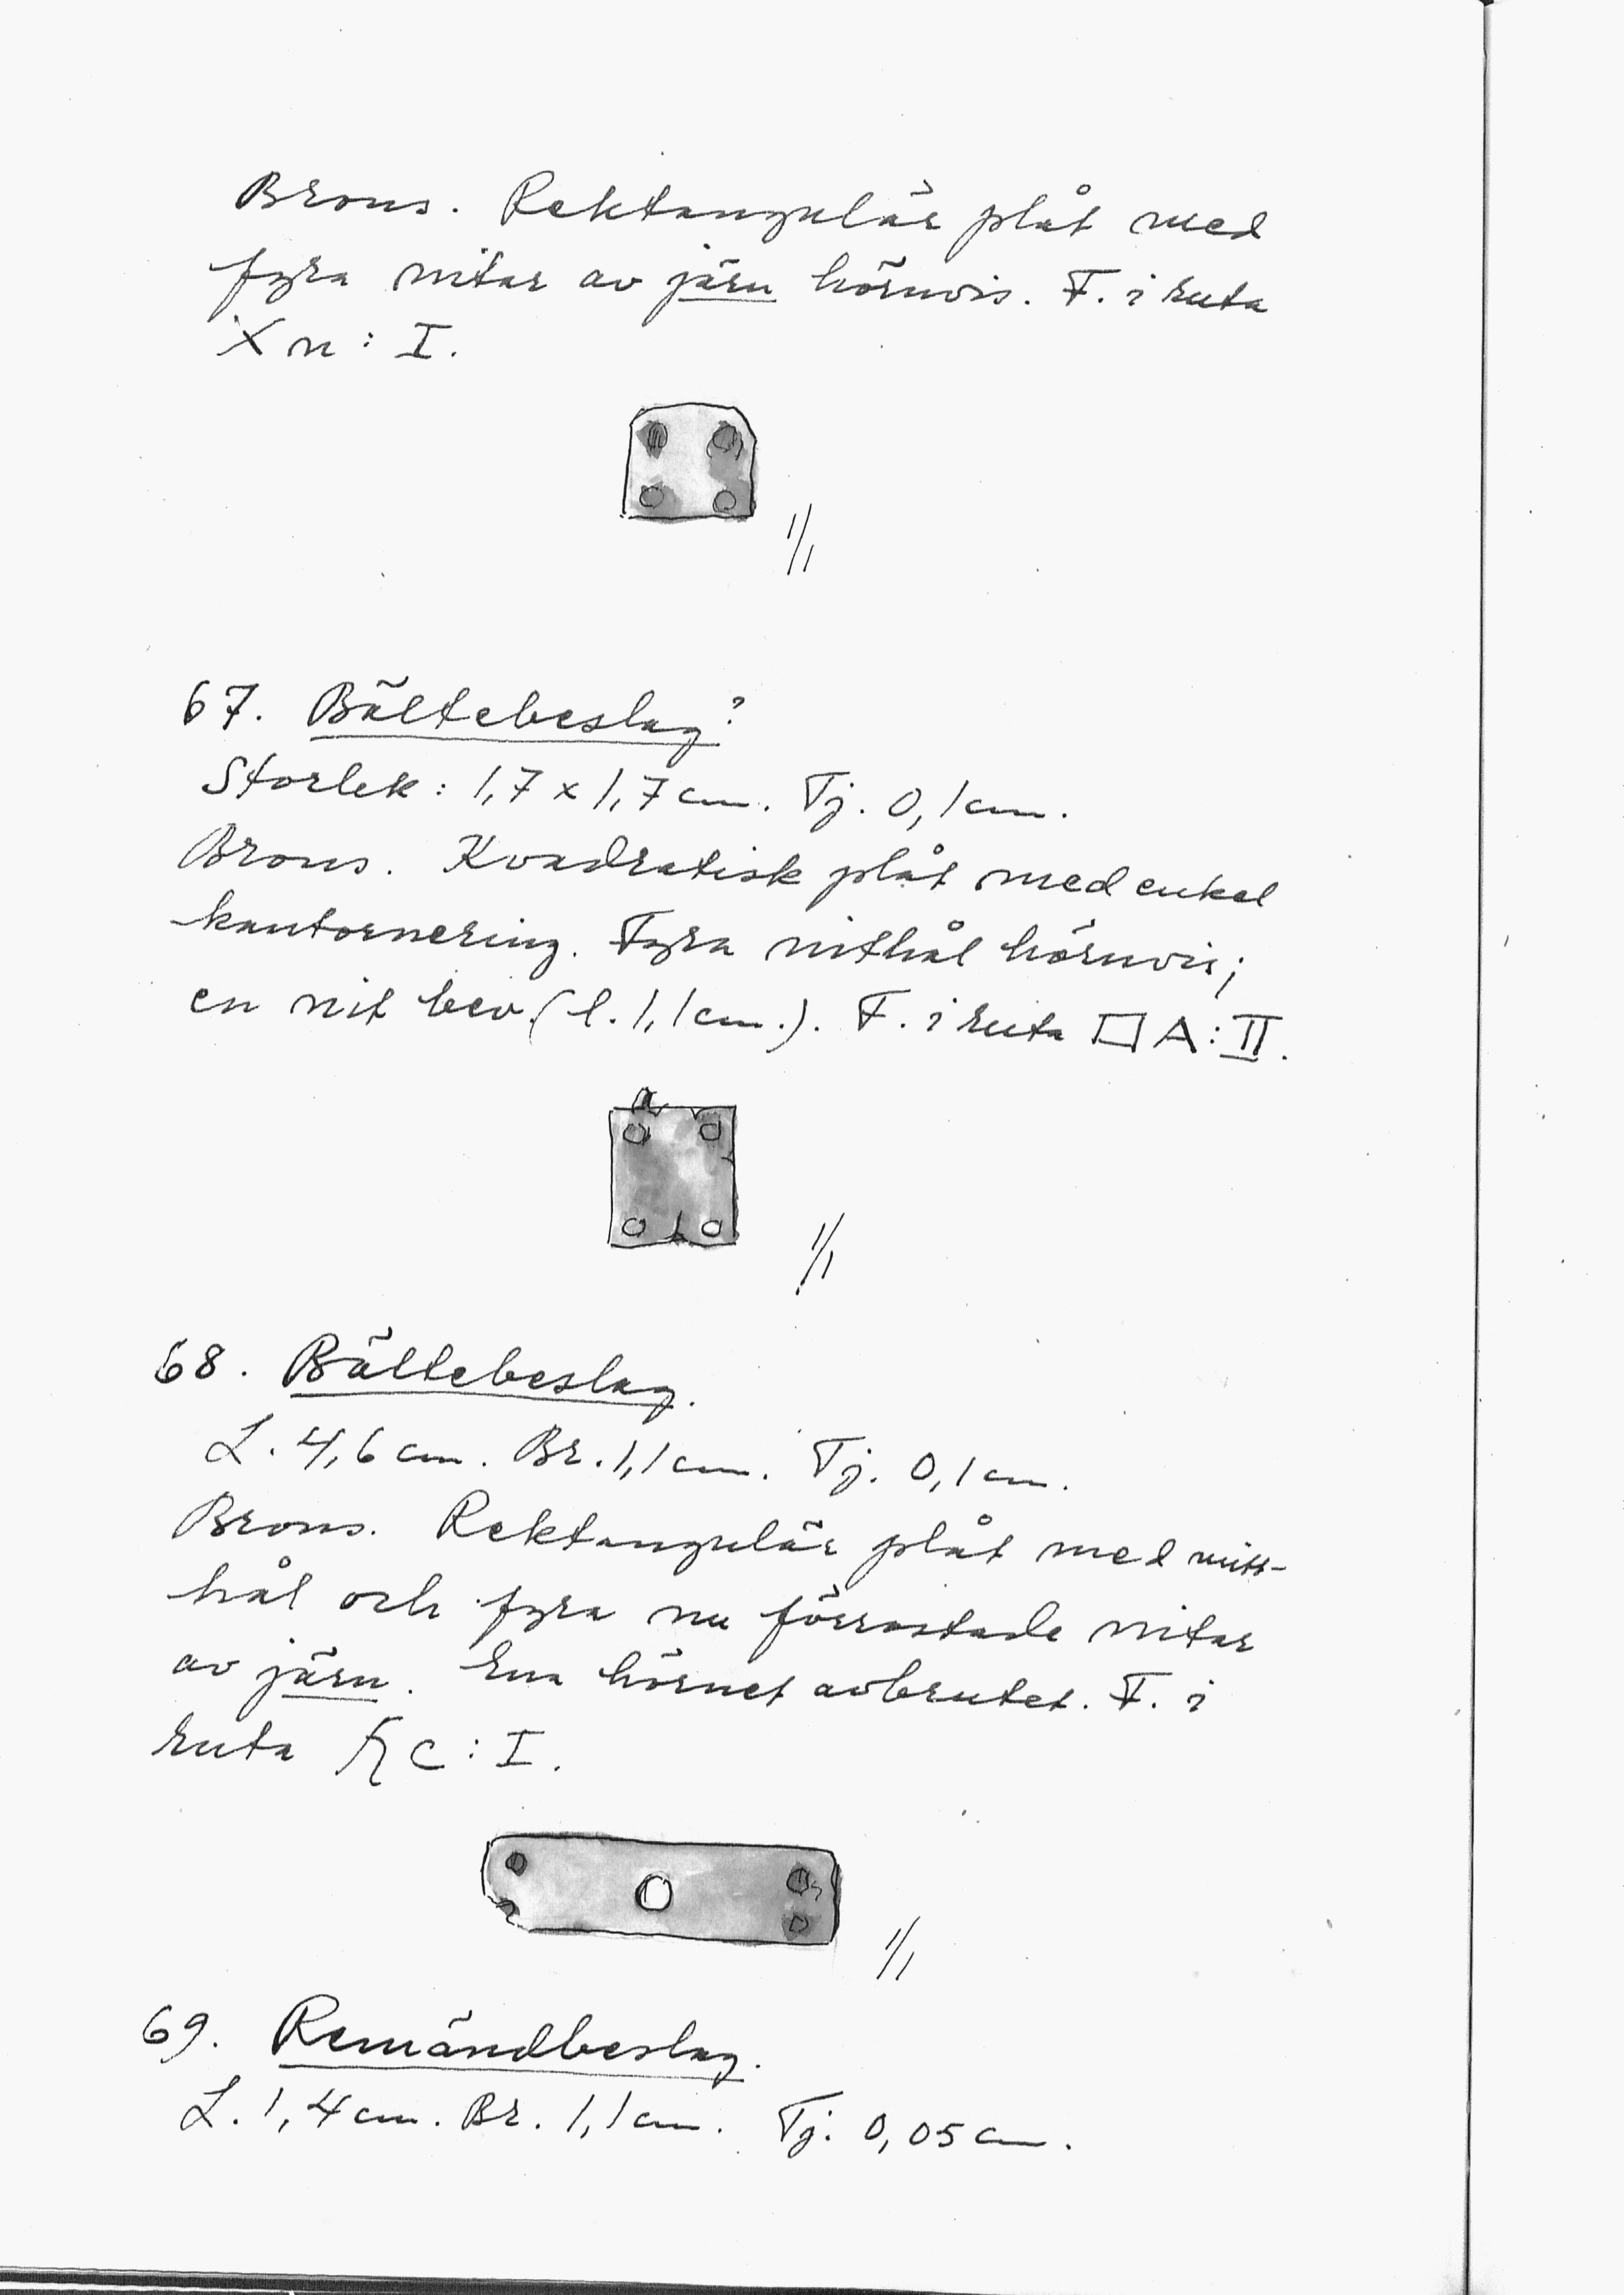 Brons. Rektangulär plåt med
fyra nitar av järn hörnvis. F. i ruta
X n : I.
1/1
67. Bältebeslag?
Storlek: 1,7 x 1,7 cm. Tj. 0,1 cm.
Brons. Kvadratisk plåt med enkel
kantornering. Fyra nithål hörnvis;
en nit bev. (l. 1,1 cm.). F. i ruta □ A : II.
1/1
68. Bältebeslag.
L. 4,6 cm. Br. 1,1 cm. Tj. 0,1 cm.
Brons. Rektangulär plåt med mitt-
hål och fyra nu förrostade nitar
av järn. Ena hörnet avbrutet. F. i
ruta C : I.
1/1
69. Remändbeslag.
L. 1,4 cm. Br. 1,1 cm. Tj. 0,05 cm.